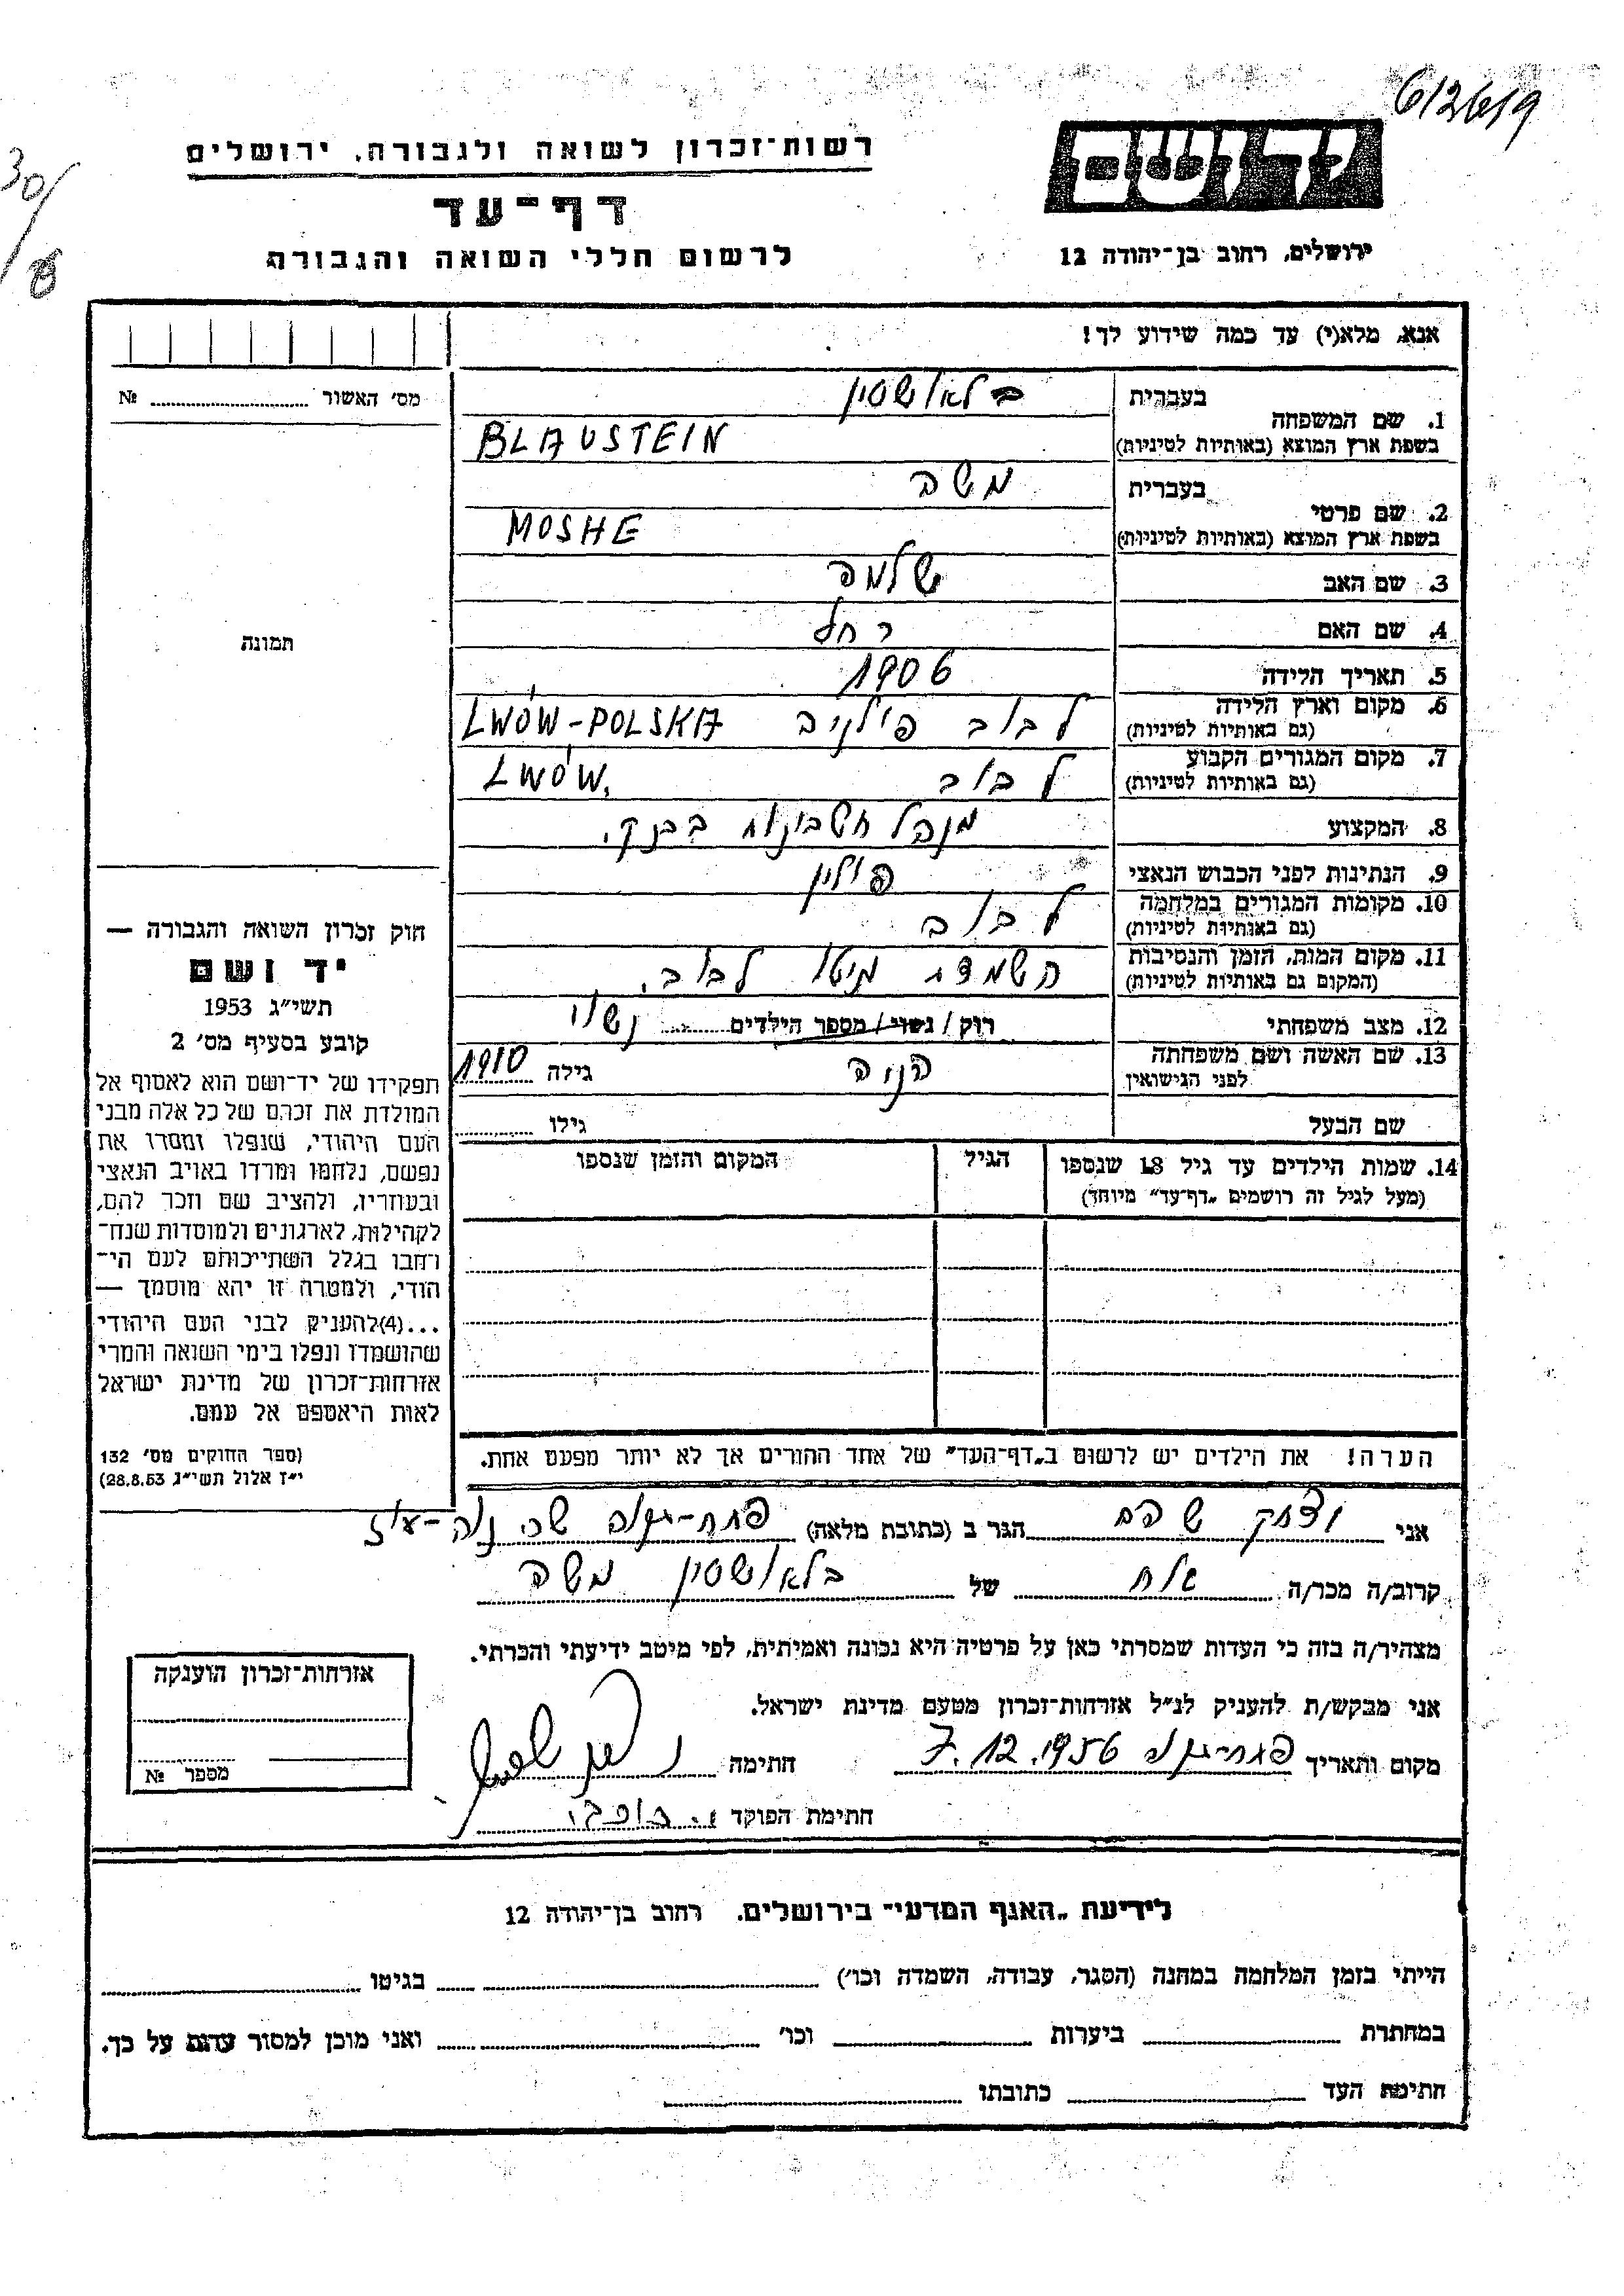 612619
30/
8
יד ושם
רשות־זכרון לשואה ולגבורה, ירושלים
דף־עד
לרשום חללי השואה והגבורה
ירושלים, רחוב בן־יהודה 12
אנא, מלא(י) עד כמה שידוע לך!
מס׳ האשור № 
תמונה
1. שם המשפחה
בעברית בלאושטין
בשפת ארץ המוצא (באותיות לטיניות) BLAUSTEIN
2. שם פרטי
בעברית משה
בשפת ארץ המוצא (באותיות לטיניות) MOSHE
3. שם האב שלמה
4. שם האם רחל
5. תאריך הלידה 1906
6. מקום וארץ הלידה לבוב פולניה LWÓW-POLSKA
(גם באותיות לטיניות)
7. מקום המגורים הקבוע לבוב LWÓW,
(גם באותיות לטיניות)
8. המקצוע מנהל חשבונות בבנק.
9. הנתינות לפני הכבוש הנאצי פולין
10. מקומות המגורים במלחמה לבוב
(גם באותיות לטיניות)
11. מקום המות, הזמן והנסיבות השמדת גיטו לבוב.
(המקום גם באותיות לטיניות)
12. מצב משפחתי רוק / נשוי / מספר הילדים נשוי
13. שם האשה ושם משפחתה חנה גילה 1910
לפני הנישואין
שם הבעל גילו
14. שמות הילדים עד גיל 18 שנספו הגיל המקום והזמן שנספו
(מעל לגיל זה רושמים „דף־עד״ מיוחד)
הערה! את הילדים יש לרשום ב„דף־העד״ של אחד ההורים אך לא יותר מפעם אחת.
חוק זכרון השואה והגבורה —
יד ושם
תשי״ג 1953
קובע בסעיף מס׳ 2
תפקידו של יד־ושם הוא לאסוף אל
המולדת את זכרם של כל אלה מבני
העם היהודי, שנפלו ומסרו את
נפשם, נלחמו ומרדו באויב הנאצי
ובעוזריו, ולהציב שם וזכר להם,
לקהילות, לארגונים ולמוסדות שנח־
רחבו בגלל השתייכותם לעם הי־
הודי, ולמטרה זו יהא מוסמך —
...(4)להעניק לבני העם היהודי
שהושמדו ונפלו בימי השואה והמרי
אזרחות־זכרון של מדינת ישראל
לאות היאספם אל עמם.
(ספר החוקים מס׳ 132
י״ז אלול תשי״ג 28.8.53)
אני יצחק שהם הגר ב (כתובת מלאה) פתח־תקוה שכ׳ נוה־עוז
קרוב/ה מכר/ה של בלאושטין משה
מצהיר/ה בזה כי העדות שמסרתי כאן על פרטיה היא נכונה ואמיתית, לפי מיטב ידיעתי והכרתי.
אני מבקש/ת להעניק לנ״ל אזרחות־זכרון מטעם מדינת ישראל.
מקום ותאריך פתח־תקוה 7.12.1956 חתימה
חתימת הפוקד
אזרחות־זכרון הוענקה
מספר №
לידיעת „האגף המדעי״ בירושלים, רחוב בן־יהודה 12
הייתי בזמן המלחמה במחנה (הסגר, עבודה, השמדה וכו׳) בגיטו
במחתרת ביערות וכו׳ ואני מוכן למסור עדות על כך.
חתימת העד כתובתו